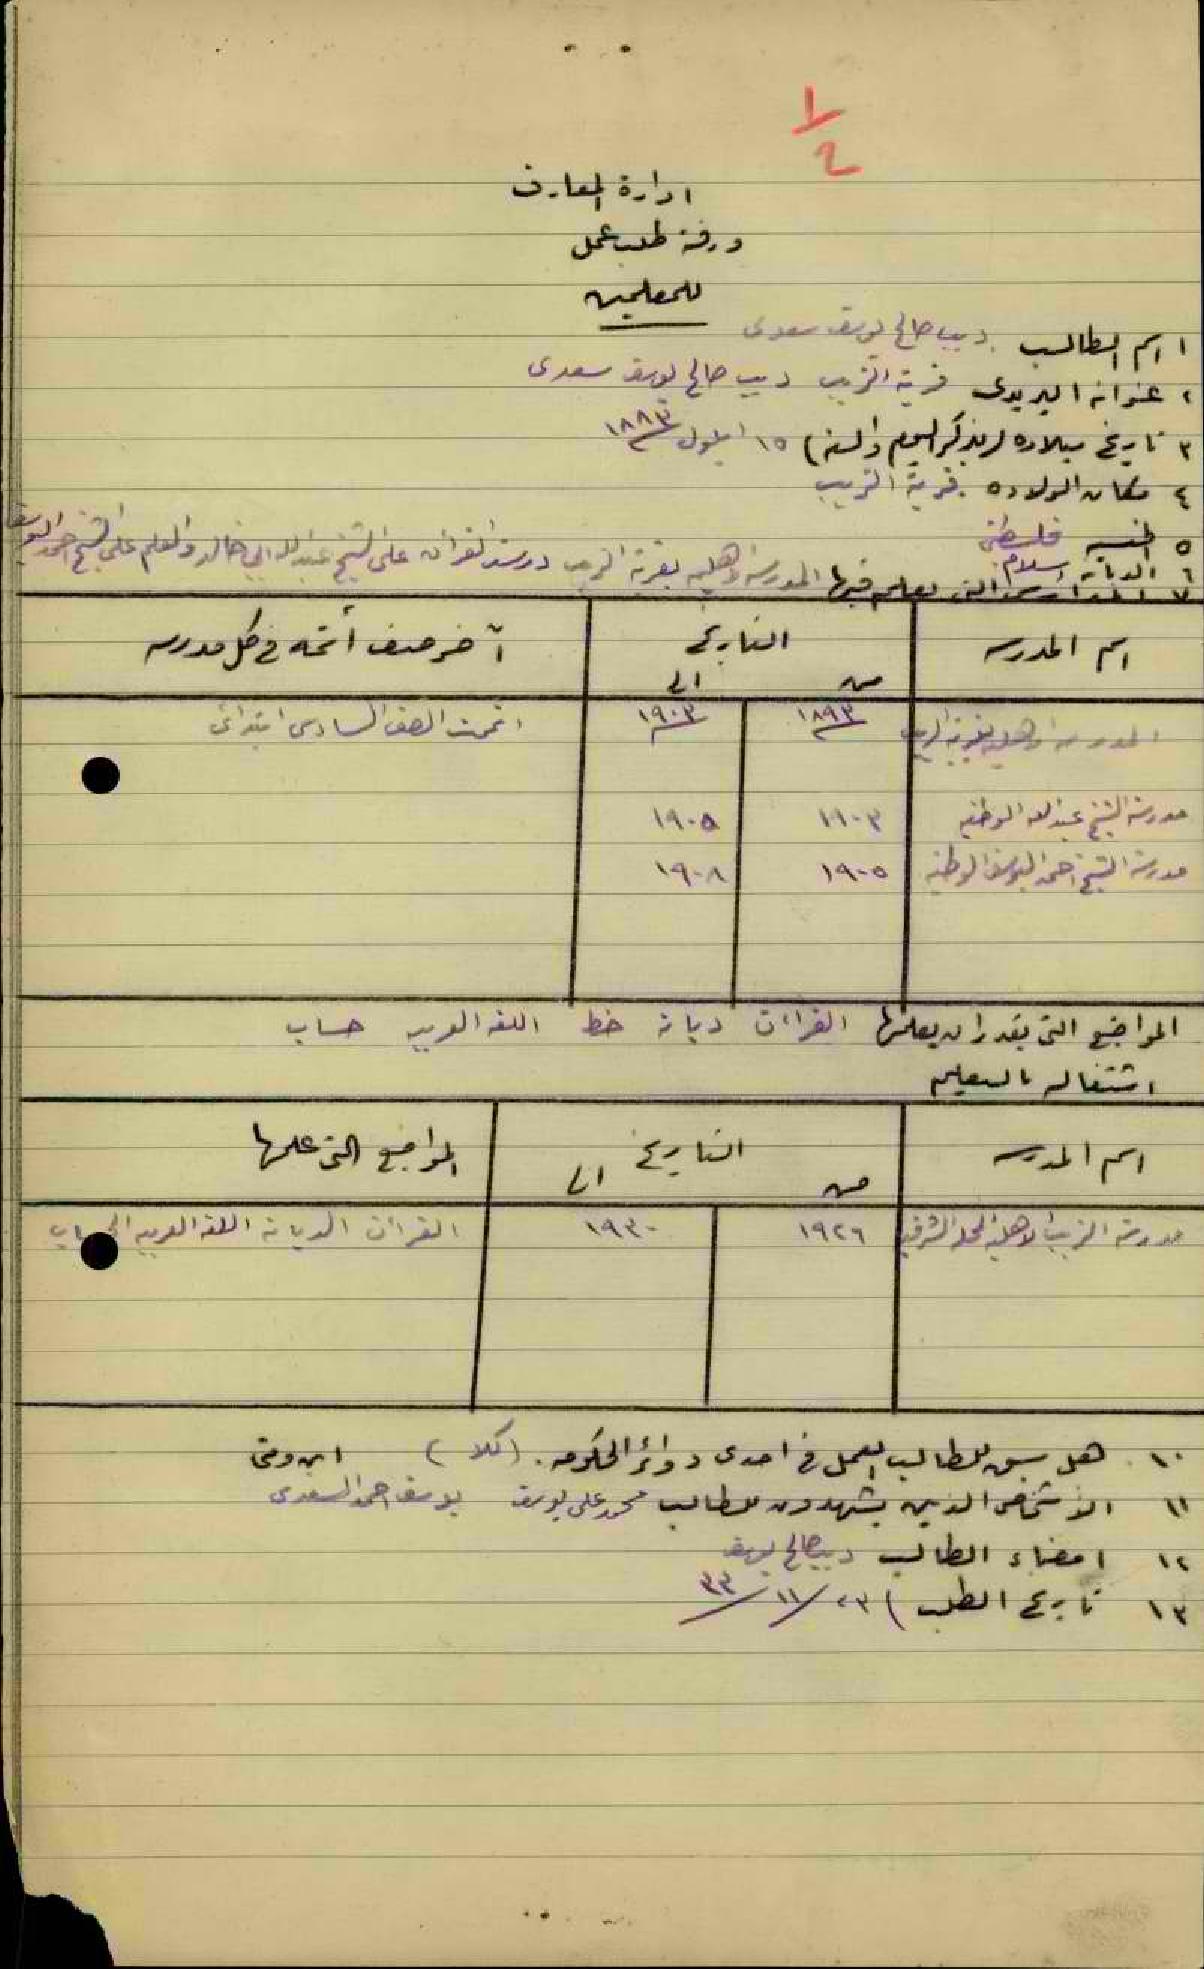 ١/٢
ادارة المعارف
ورقة طلب عمل
للمعلمين
١ اسم الطالب ديب صالح يوسف سعدى
٢ عنوانه البريدى قرية الزيب ديب صالح يوسف سعدى
٣ تاريخ ميلاده (يذكر اليوم والسنة) ١٥ ايلول ١٨٨٣
٤ مكان الولاده قرية الزيب
٥ الجنسيه فلسطينى
٦ الديانة اسلام
٧ المدارس التى تعلم فيها المدرسة الاهليه بقرية الزيب درست القران على الشيخ عبدالله ابي خالد والعلم على الشيخ احمد اليوسف
اسم المدرسه التاريخ آخر صف أتمه في كل مدرسه
من الى
المدرسه الاهليه بقرية الزيب ١٨٩٣ ١٩٠٣ اتممت الصف السادس ابتدائى
مدرسة الشيخ عبدالله الوطنيه ١٩٠٣ ١٩٠٥
مدرسة الشيخ احمد اليوسف الوطنيه ١٩٠٥ ١٩٠٨
المواضيع التى يقدر ان يعلمها القراان ديانه خط اللغه العربيه حساب
اشتغاله بالتعليم
اسم المدرسه التاريخ المواضيع التى علمها
من الى
مدرسة الزيب الاهلية المحله الشرقيه ١٩٢٦ ١٩٣٠ القران الديانه اللغه العربيه الحساب
١٠ هل سبق للطالب العمل في احدى دوائر الحكومه. (كلا) اين ومتى
١١ الاشخاص الذين يشهدون للطالب محمد على يوسف يوسف احمد السعدى
١٢ امضاء الطالب ديب صالح يوسف
١٣ تاريخ الطلب) ٢٣/١١/٣٣